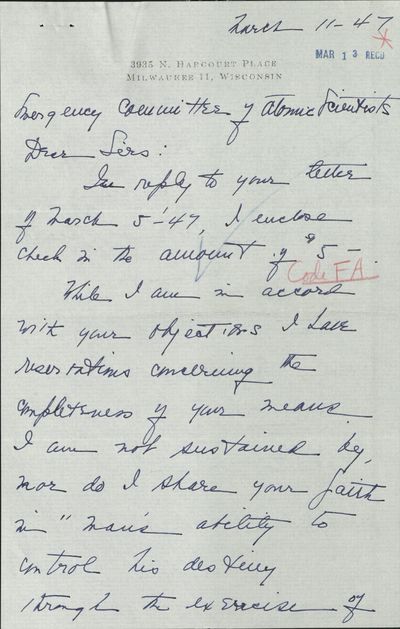 March 11-47
MAR 13 RECD
3935 N. HARCOURT PLACE
MILWAUKEE 11, WISCONSIN
Emergency Committee of Atomic Scientists
Dear Sirs:
In reply to your letter
of March 5-'47, I enclose
check in the amount of $5-
Code FA
While I am in accord
with your objectives I have
reservations concerning the
completeness of your means
I am not sustained by,
nor do I share your faith
in "man's ability to
control his destiny
through the exercise of